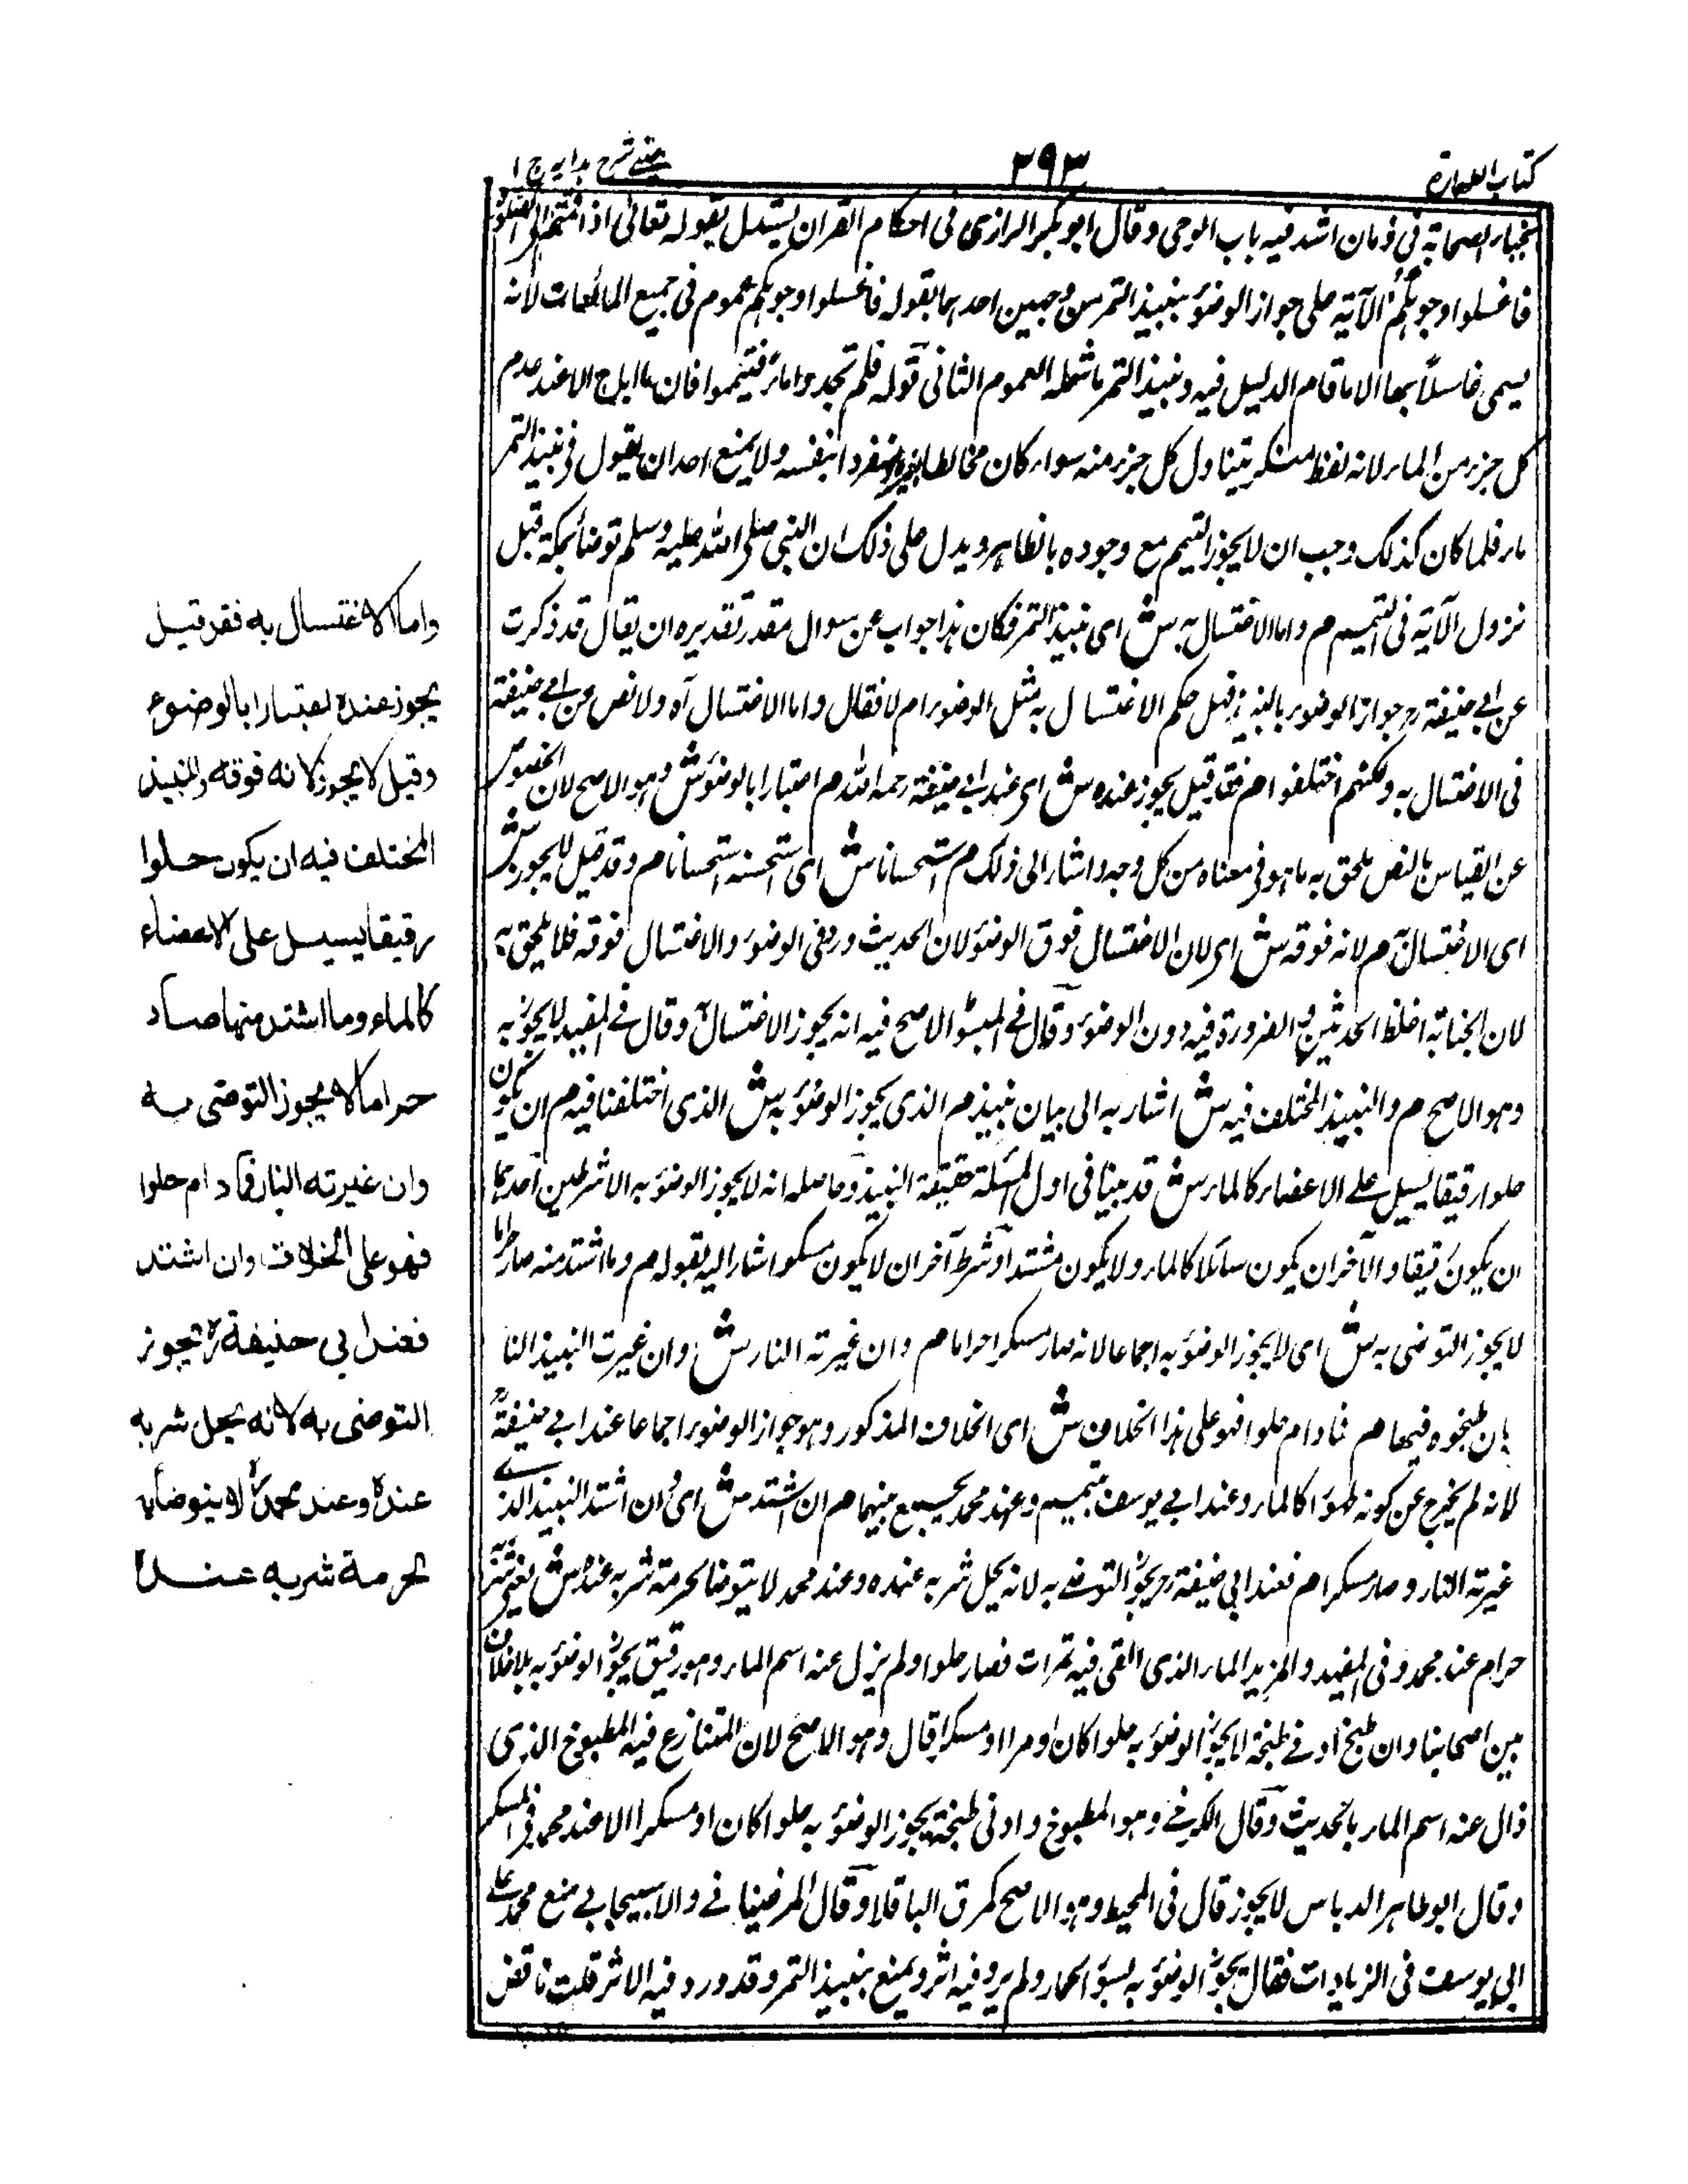 كتاب الطهارة
٢٩٣
عينى شرح هدايه ج ١
كبار الصحابة فى زمان اشد فيه باب الوحى وقال ابو بكر الرازى فى احكام القران يستدل بقوله تعالى اذا قمتم الى الصلوة
فاغسلوا وجوهكم الآية على جواز الوضوء بنبيذ التمر من وجهين احدهما بقوله فاغسلوا وجوهكم عموم فى جميع المائعات لانه
يسمى غاسلاً بها الا ما قام الدليل فيه ونبيذ التمر ما شمله العموم الثانى قوله فلم تجدوا ماء فتيمموا فان ما اباح الا عند عدم
كل جزء من الماء لانه لفظ منكر يتناول كل جزء منه سواء كان مخالطا لغيره او منفردا بنفسه ولا يمنع احد ان يقول فى نبيذ التمر
ماء فلما كان كذلك وجب ان لا يجوز التيمم مع وجوده بالظاهر ويدل على ذلك ان النبى صلى الله عليه وسلم توضأ بمكة قبل
نزول الآية فى التيمم م واما الاغتسال به ش اى نبيذ التمر فكان هذا جواب عن سوال مقدر تقديره ان يقال قد ذكرت
عن ابى حنيفة رح جواز الوضوء بالنبيذ فهل حكم الاغتسال به مثل الوضوء ام لا فقال واما الاغتسال آه ولا نص عن ابى حنيفة
فى الاغتسال به ولكنهم اختلفوا م فقد قيل يجوز عنده ش اى عند ابى حنيفة رحمه الله م اعتبارا بالوضوء ش وهو الاصح لان المخصوص
عن القياس بالنص يلحق به ما هو فى معناه من كل وجه واشار الى ذلك م استحسانا ش اى استحسنه استحسانا م وقد قيل لا يجوز ش
اى الاغتسال م لانه فوقه ش اى لان الاغتسال فوق الوضوء لان الحديث ورد فى الوضوء والاغتسال فوقه فلا يلحق به
لان الجنابة اغلظ الحدثين والضرورة فيه دون الوضوء وقال فى المبسوط الاصح فيه انه يجوز الاغتسال وقال فى المفيد لا يجوز به
وهو الاصح م والنبيذ المختلف فيه ش اشار به الى بيان نبيذ م الذى يجوز الوضوء به ش الذى اختلفنا فيه م ان يكون
حلوا رقيقا يسيل على الاعضاء كالماء ش قد بينا فى اول المسئلة حقيقة النبيذ وحاصله انه لا يجوز الوضوء به الا بشرطين احدهما
ان يكون رقيقا والآخر ان يكون سائلا كالماء ولا يكون مشتدا وشرط آخر ان لا يكون مسكرا اشار اليه بقوله م وما اشتد منه صار حراما
لا يجوز التوضى به ش اى لا يجوز الوضوء به اجماعا لانه صار مسكرا حراما م وان غيرته النار ش وان غيرت النبيذ النا
بان طبخوه فيها م فما دام حلوا فهو على هذا الخلاف ش اى الخلاف المذكور وهو جواز الوضوء اجماعا عند ابى حنيفة رح
لانه لم يخرج عن كونه طهورا كالماء وعند ابى يوسف تيمم وعند محمد يجمع بينهما م ان اشتد ش اى وان اشتد النبيذ الذى
غيرته النار وصار مسكرا م فعند ابى حنيفة رح يجوز التوضى به لانه يحل شربه عنده وعند محمد لا يتوضأ لحرمة شربه عنده ش يعنى شربه
حرام عند محمد وفى المفيد والمزيد الماء الذى القى فيه تمرات فصار حلوا ولم يزل عنه اسم الماء وهو رقيق يجوز الوضوء به بلا خلاف
بين اصحابنا وان طبخ ادنى طبخة لا يجوز الوضوء به حلوا كان او مرا او مسكرا قال وهو الاصح لان المتنازع فيه المطبوخ الذى
زال عنه اسم الماء بالحديث وقال الكرخى وهو المطبوخ وادنى طبخة يجوز الوضوء به حلوا كان او مسكرا الا عند محمد فى المسكر
وقال ابو طاهر الدباس لا يجوز قال فى المحيط وهو الاصح كمرق الباقلا وقال المرغينانى والاسبيجابى منع محمد على
ابى يوسف فى الزيادات فقال يجوز الوضوء به بسؤر الحمار ولم يرو فيه اثر ويمنع بنبيذ التمر وقد ورد فيه الاثر قلت ناقض
واما الاغتسال به فقد قيل
يجوز عنده اعتبارا بالوضوء
وقيل لا يجوز لانه فوقه والنبيذ
المختلف فيه ان يكون حلوا
رقيقا يسيل على الاعضاء
كالماء وما اشتد منها صار
حراما لا يجوز التوضى به
وان غيرته النار فما دام حلوا
فهو على الخلاف وان اشتد
فعند ابى حنيفة رح يجوز
التوضى به لانه يحل شربه
عنده وعند محمد لا يتوضأ به
لحرمة شربه عنده